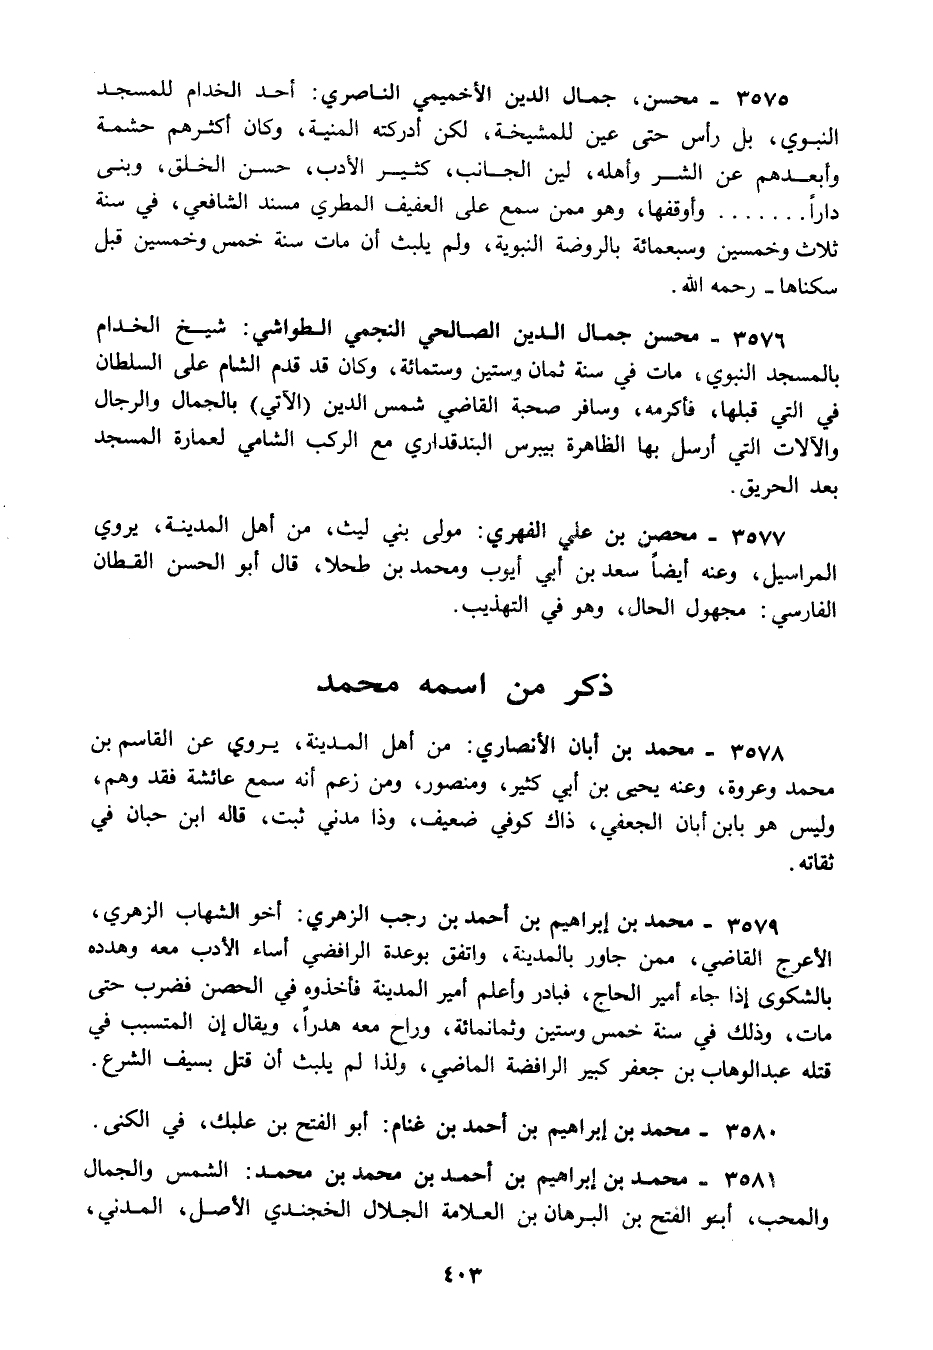 ٣٥٧٥ - محسن، جمال الدين الأخميمي الناصري: أحد الخدام للمسجد
النبوي، بل رأس حتى عين للمشيخة، لكن أدركته المنية، وكان أكثرهم حشمة
وأبعدهم عن الشر وأهله، لين الجانب، كثير الأدب، حسن الخلق، وبنى
داراً . . . . . . . وأوقفها، وهو ممن سمع على العفيف المطري مسند الشافعي، في سنة
ثلاث وخمسين وسبعمائة بالروضة النبوية، ولم يلبث أن مات سنة خمس وخمسين قبل
سكناها - رحمه الله.
٣٥٧٦ - محسن جمال الدين الصالحي النجمي الطواشي: شيخ الخدام
بالمسجد النبوي، مات في سنة ثمان وستين وستمائة، وكان قد قدم الشام على السلطان
في التي قبلها، فأكرمه، وسافر صحبة القاضي شمس الدين (الآتي) بالجمال والرجال
والآلات التي أرسل بها الظاهرة بيبرس البندقداري مع الركب الشامي لعمارة المسجد
بعد الحريق.
٣٥٧٧ - محصن بن علي الفهري: مولى بني ليث، من أهل المدينة، يروي
المراسيل، وعنه أيضاً سعد بن أبي أيوب ومحمد بن طحلا، قال أبو الحسن القطان
الفارسي: مجهول الحال، وهو في التهذيب.
ذكر من اسمه محمد
٣٥٧٨ - محمد بن أبان الأنصاري: من أهل المدينة، يروي عن القاسم بن
محمد وعروة، وعنه يحيى بن أبي كثير، ومنصور، ومن زعم أنه سمع عائشة فقد وهم،
وليس هو بابن أبان الجعفي، ذاك كوفي ضعيف، وذا مدني ثبت، قاله ابن حبان في
ثقاته.
٣٥٧٩ - محمد بن إبراهيم بن أحمد بن رجب الزهري: أخو الشهاب الزهري،
الأعرج القاضي، ممن جاور بالمدينة، واتفق بوعدة الرافضي أساء الأدب معه وهدده
بالشكوى إذا جاء أمير الحاج، فبادر وأعلم أمير المدينة فأخذوه في الحصن فضرب حتى
مات، وذلك في سنة خمس وستين وثمانمائة، وراح معه هدراً، ويقال إن المتسبب في
قتله عبدالوهاب بن جعفر كبير الرافضة الماضي، ولذا لم يلبث أن قتل بسيف الشرع.
٣٥٨٠ - محمد بن إبراهيم بن أحمد بن غنام: أبو الفتح بن علبك، في الكنى.
٣٥٨١ - محمد بن إبراهيم بن أحمد بن محمد بن محمد: الشمس والجمال
والمحب، أبو الفتح بن البرهان بن العلامة الجلال الخجندي الأصل، المدني،
٤٠٣